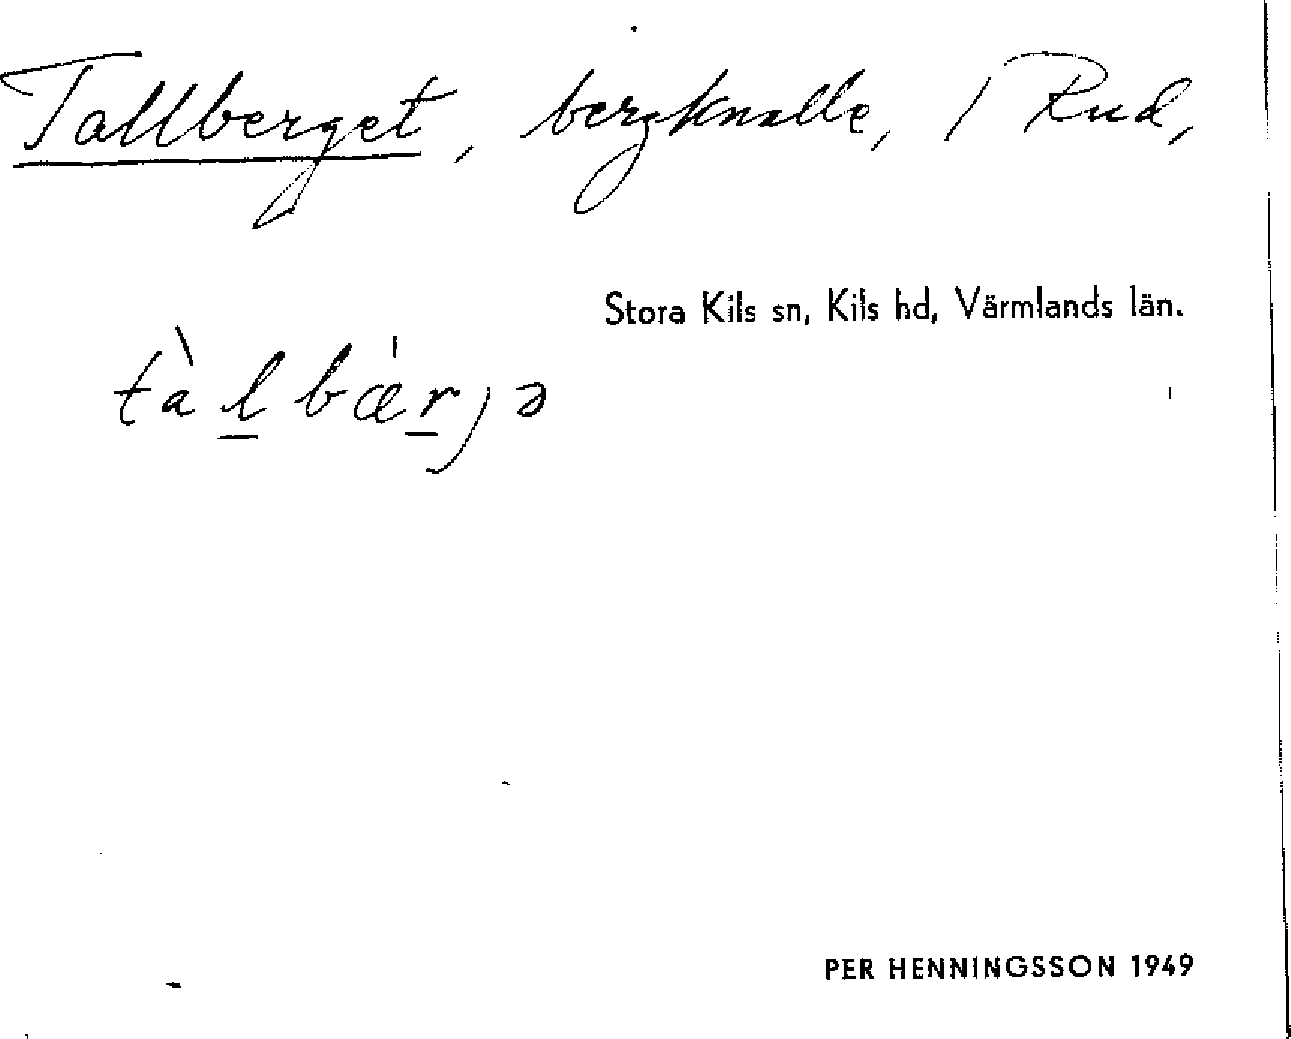 Tallberget, bergknalle, 1 Rud,
Stora Kils sn, Kils hd, Värmlands län.
tàl̲bæ̍r̲jə
PER HENNINGSSON 1949